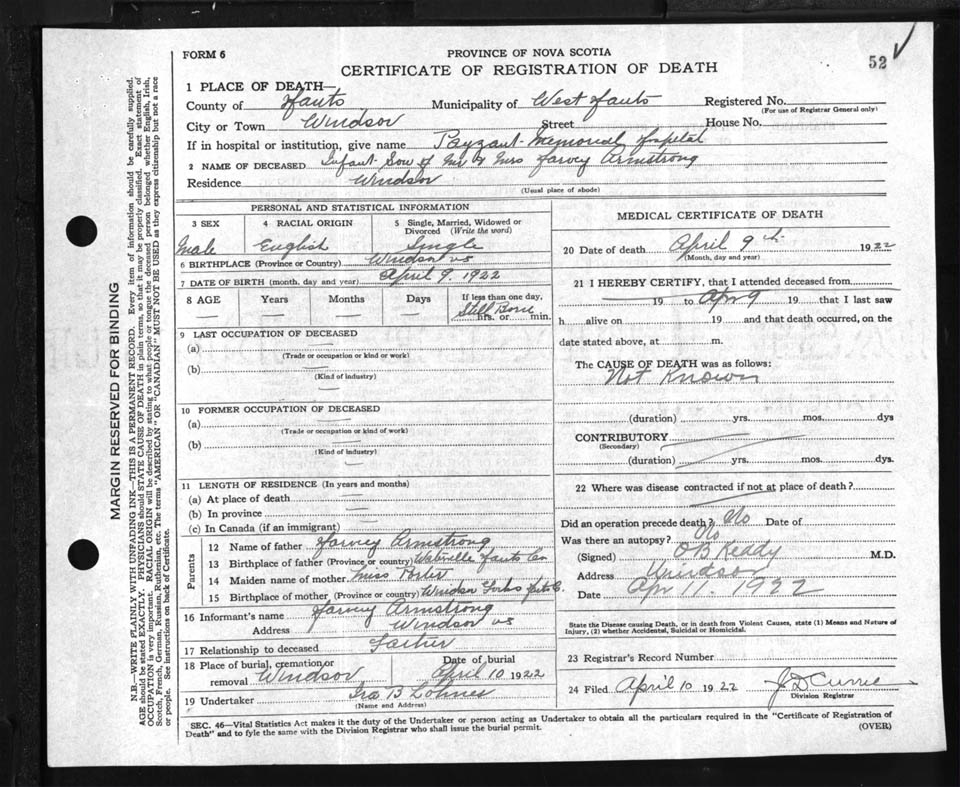 FORM 6
PROVINCE OF NOVA SCOTIA
52
CERTIFICATE OF REGISTRATION OF DEATH
1 PLACE OF DEATH—
County of Hants Municipality of West Hants Registered No.
(For use of Registrar General only)
City or Town Windsor Street House No.
If in hospital or institution, give name Payzant Memorial Hospital
2 NAME OF DECEASED Infant Son of Mr & Mrs Harvey Armstrong
Residence Windsor
(Usual place of abode)
PERSONAL AND STATISTICAL INFORMATION
3 SEX 4 RACIAL ORIGIN 5 Single, Married, Widowed or Divorced (Write the word)
Male English Single
6 BIRTHPLACE (Province or Country) Windsor NS
7 DATE OF BIRTH (month, day and year) April 9. 1922
8 AGE Years Months Days If less than one day,
— — — — Still Born
hrs. or min.
9 LAST OCCUPATION OF DECEASED
(a) —
(Trade or occupation or kind or work)
(b) —
(Kind of industry)
10 FORMER OCCUPATION OF DECEASED
(a) —
(Trade or occupation or kind of work)
(b) —
(Kind of industry)
—
11 LENGTH OF RESIDENCE (In years and months)
(a) At place of death —
(b) In province —
(c) In Canada (if an immigrant) —
Parents
12 Name of father Harvey Armstrong
13 Birthplace of father (Province or country) Hants Co
14 Maiden name of mother Miss Porter
15 Birthplace of mother (Province or country) Windsor Forks Hants Co.
16 Informant's name Harvey Armstrong
Address Windsor NS
17 Relationship to deceased Father
18 Place of burial, cremation or removal Windsor Date of burial April 10 1922
19 Undertaker Ira B
(Name and Address)
MEDICAL CERTIFICATE OF DEATH
20 Date of death April 9th 1922
(Month, day and year)
21 I HEREBY CERTIFY, that I attended deceased from
19 to Apr 9 19 that I last saw
h alive on 19 and that death occurred, on the
date stated above, at m.
The CAUSE OF DEATH was as follows:
Not Known
(duration) yrs. mos. dys
CONTRIBUTORY
(Secondary)
(duration) yrs. mos. dys.
22 Where was disease contracted if not at place of death?
Did an operation precede death? No Date of
Was there an autopsy? No
(Signed) O B Keddy M.D.
Address Windsor
Date Apr 11. 1922
State the Disease causing Death, or in death from Violent Causes, state (1) Means and Nature of
Injury, (2) whether Accidental, Suicidal or Homicidal.
23 Registrar's Record Number
24 Filed April 10 1922 J D Currie
Division Registrar
SEC. 46—Vital Statistics Act makes it the duty of the Undertaker or person acting as Undertaker to obtain all the particulars required in the "Certificate of Registration of
Death" and to fyle the same with the Division Registrar who shall issue the burial permit. (OVER)
MARGIN RESERVED FOR BINDING
N.B.—WRITE PLAINLY WITH UNFADING INK—THIS IS A PERMANENT RECORD. Every item of information should be carefully supplied.
AGE should be stated EXACTLY. PHYSICIANS should STATE CAUSE OF DEATH in plain terms, so that it may be properly classified. Exact statement of
OCCUPATION is very important. RACIAL ORIGIN will be described by stating to what people or tongue the deceased person belonged whether English, Irish,
Scotch, French, German, Russian, Ruthenian, etc. The terms "AMERICAN" OR "CANADIAN" MUST NOT BE USED as they express citizenship but not a race
or people. See instructions on back of Certificate.